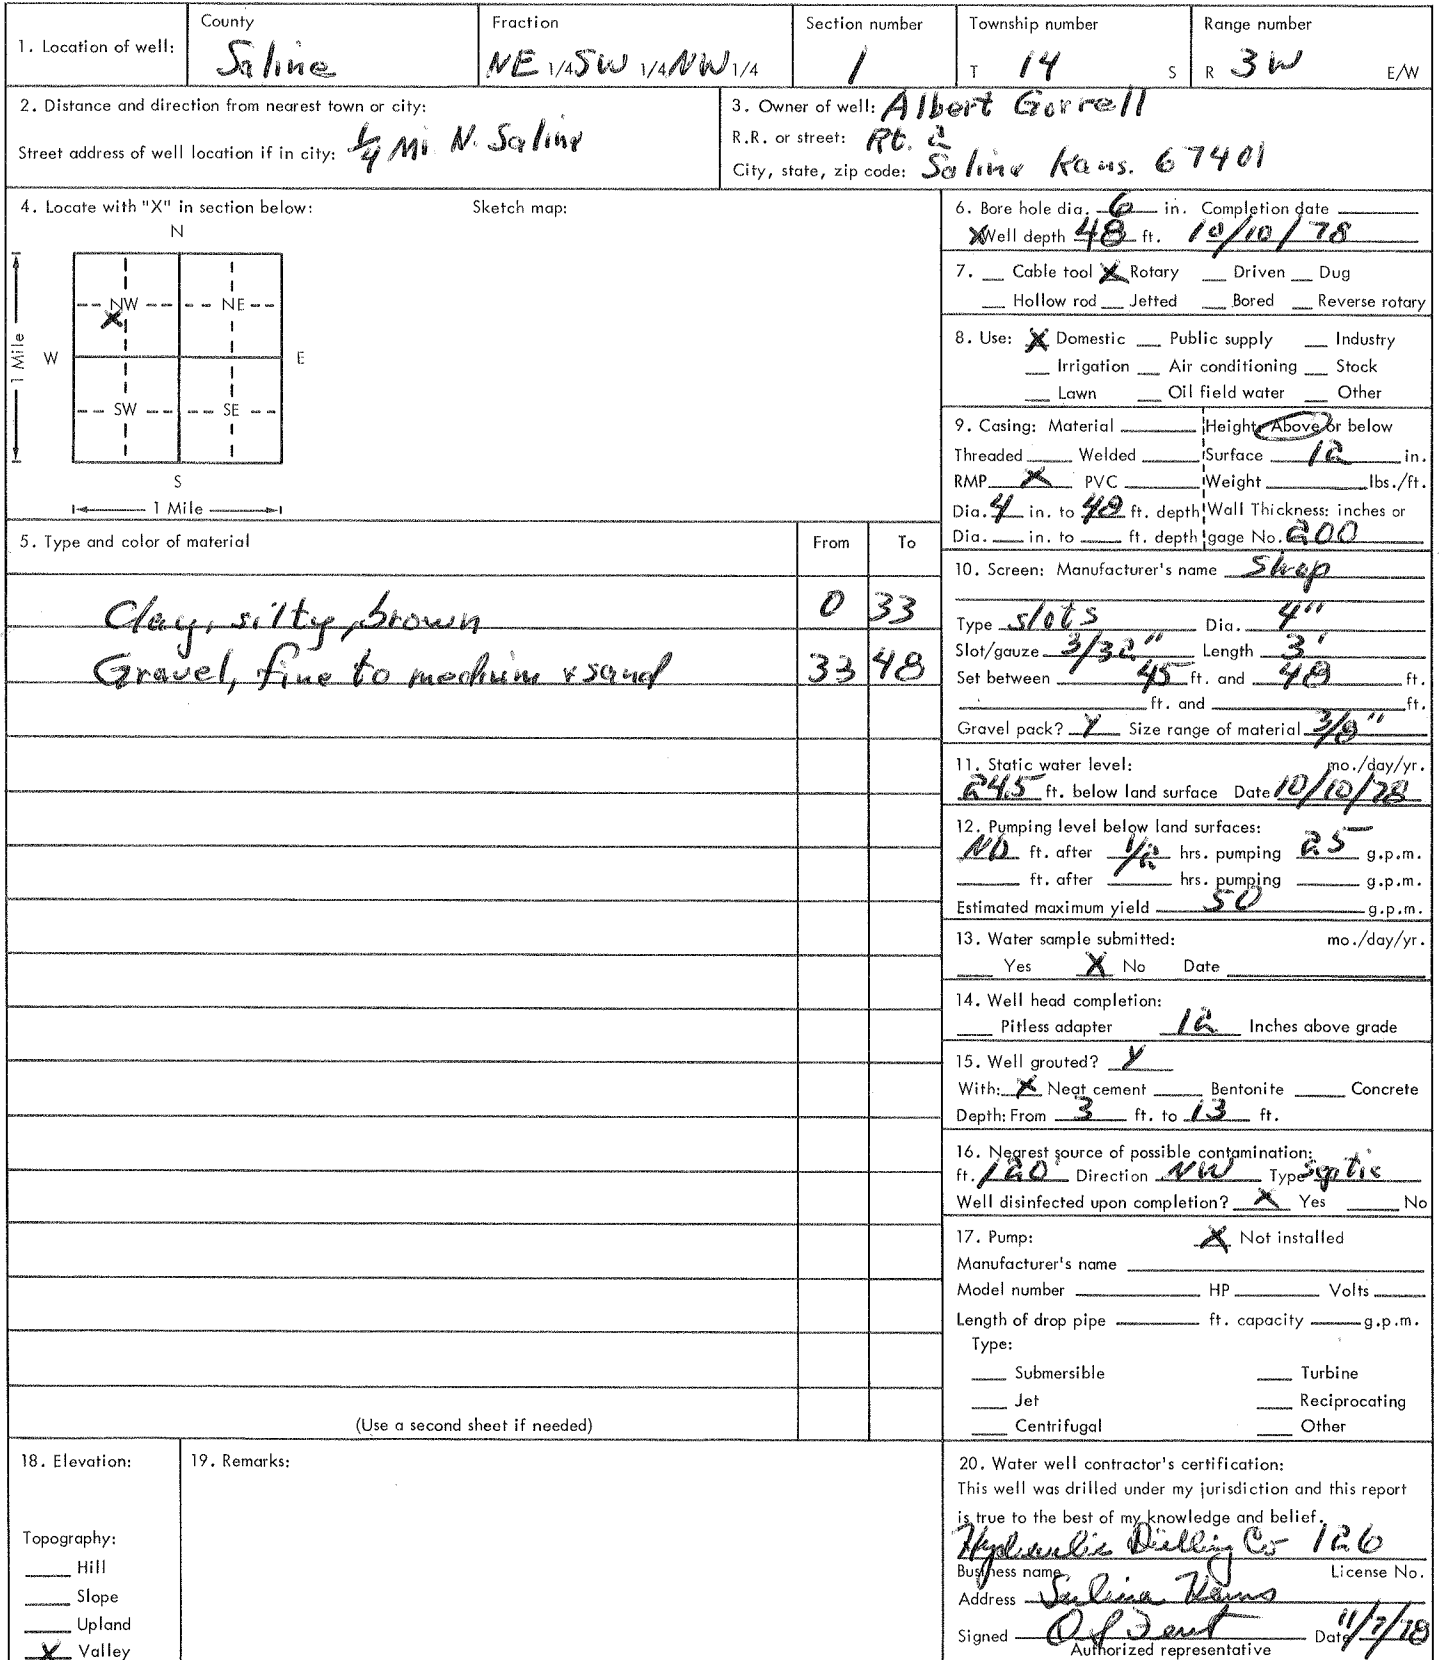 1. Location of well:
County
Saline
Fraction
NE 1/4 SW 1/4 NW 1/4
Section number
1
Township number
T 14 S
Range number
R 3W E/W
2. Distance and direction from nearest town or city:
Street address of well location if in city: 1/4 Mi N. Saline
3. Owner of well: Albert Gorrell
R.R. or street: Rt. 2
City, state, zip code: Saline Kans. 67401
4. Locate with "X" in section below:
Sketch map:
N
NW NE
X
1 Mile
W E
SW SE
S
1 Mile
5. Type and color of material From To
Clay, silty, brown 0 33
Gravel, fine to medium & sand 33 48
(Use a second sheet if needed)
6. Bore hole dia. 6 in. Completion date
X Well depth 48 ft. 10/10/78
7. Cable tool X Rotary Driven Dug
Hollow rod Jetted Bored Reverse rotary
8. Use: X Domestic Public supply Industry
Irrigation Air conditioning Stock
Lawn Oil field water Other
9. Casing: Material Height: Above or below
Threaded Welded Surface 12 in.
RMP X PVC Weight lbs./ft.
Dia. 4 in. to 48 ft. depth Wall Thickness: inches or
Dia. in. to ft. depth gage No. 200
10. Screen: Manufacturer's name Shop
Type slots Dia. 4"
Slot/gauze 3/32" Length 3'
Set between 45 ft. and 48 ft.
ft. and ft.
Gravel pack? Y Size range of material 3/8"
11. Static water level: mo./day/yr.
24.5 ft. below land surface Date 10/10/78
12. Pumping level below land surfaces:
ND ft. after 1/2 hrs. pumping 25 g.p.m.
ft. after hrs. pumping g.p.m.
Estimated maximum yield 50 g.p.m.
13. Water sample submitted: mo./day/yr.
Yes X No Date
14. Well head completion:
Pitless adapter 12 Inches above grade
15. Well grouted? Y
With: X Neat cement Bentonite Concrete
Depth: From 3 ft. to 13 ft.
16. Nearest source of possible contamination:
ft. 120' Direction NW Type Septic
Well disinfected upon completion? X Yes No
17. Pump: X Not installed
Manufacturer's name
Model number HP Volts
Length of drop pipe ft. capacity g.p.m.
Type:
Submersible Turbine
Jet Reciprocating
Centrifugal Other
18. Elevation:
Topography:
Hill
Slope
Upland
X Valley
19. Remarks:
20. Water well contractor's certification:
This well was drilled under my jurisdiction and this report
is true to the best of my knowledge and belief.
Hydraulic Drilling Co 126
Business name License No.
Address Salina Kans
Signed Date 11/7/78
Authorized representative